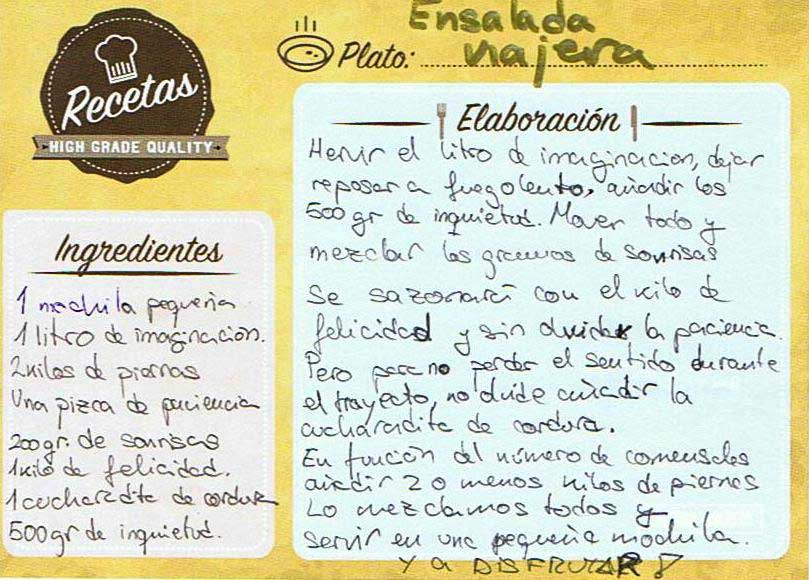 Recetas
HIGH GRADE QUALITY
Plato: Ensalada
viajera
Ingredientes
1 mochila pequeña
1 litro de imaginación.
2 kilos de piernas
Una pizca de paciencia
200 gr. de sonrisas
1 kilo de felicidad.
1 cucharadita de cordura
500 gr de inquietud.
Elaboración
Hervir el litro de imaginación, dejar
reposar a fuego lento, añadir los
500 gr de inquietud. Mover todo y
mezclar los gramos de sonrisas
Se sazonará con el kilo de
felicidad y sin olvidar la paciencia.
Pero para no perder el sentido durante
el trayecto, no olvide añadir la
cucharadita de cordura.
En función del número de comensales
añadir 2 o menos kilos de piernas
Lo mezclamos todos y
servir en una pequeña mochila.
Y a DISFRUTAR!